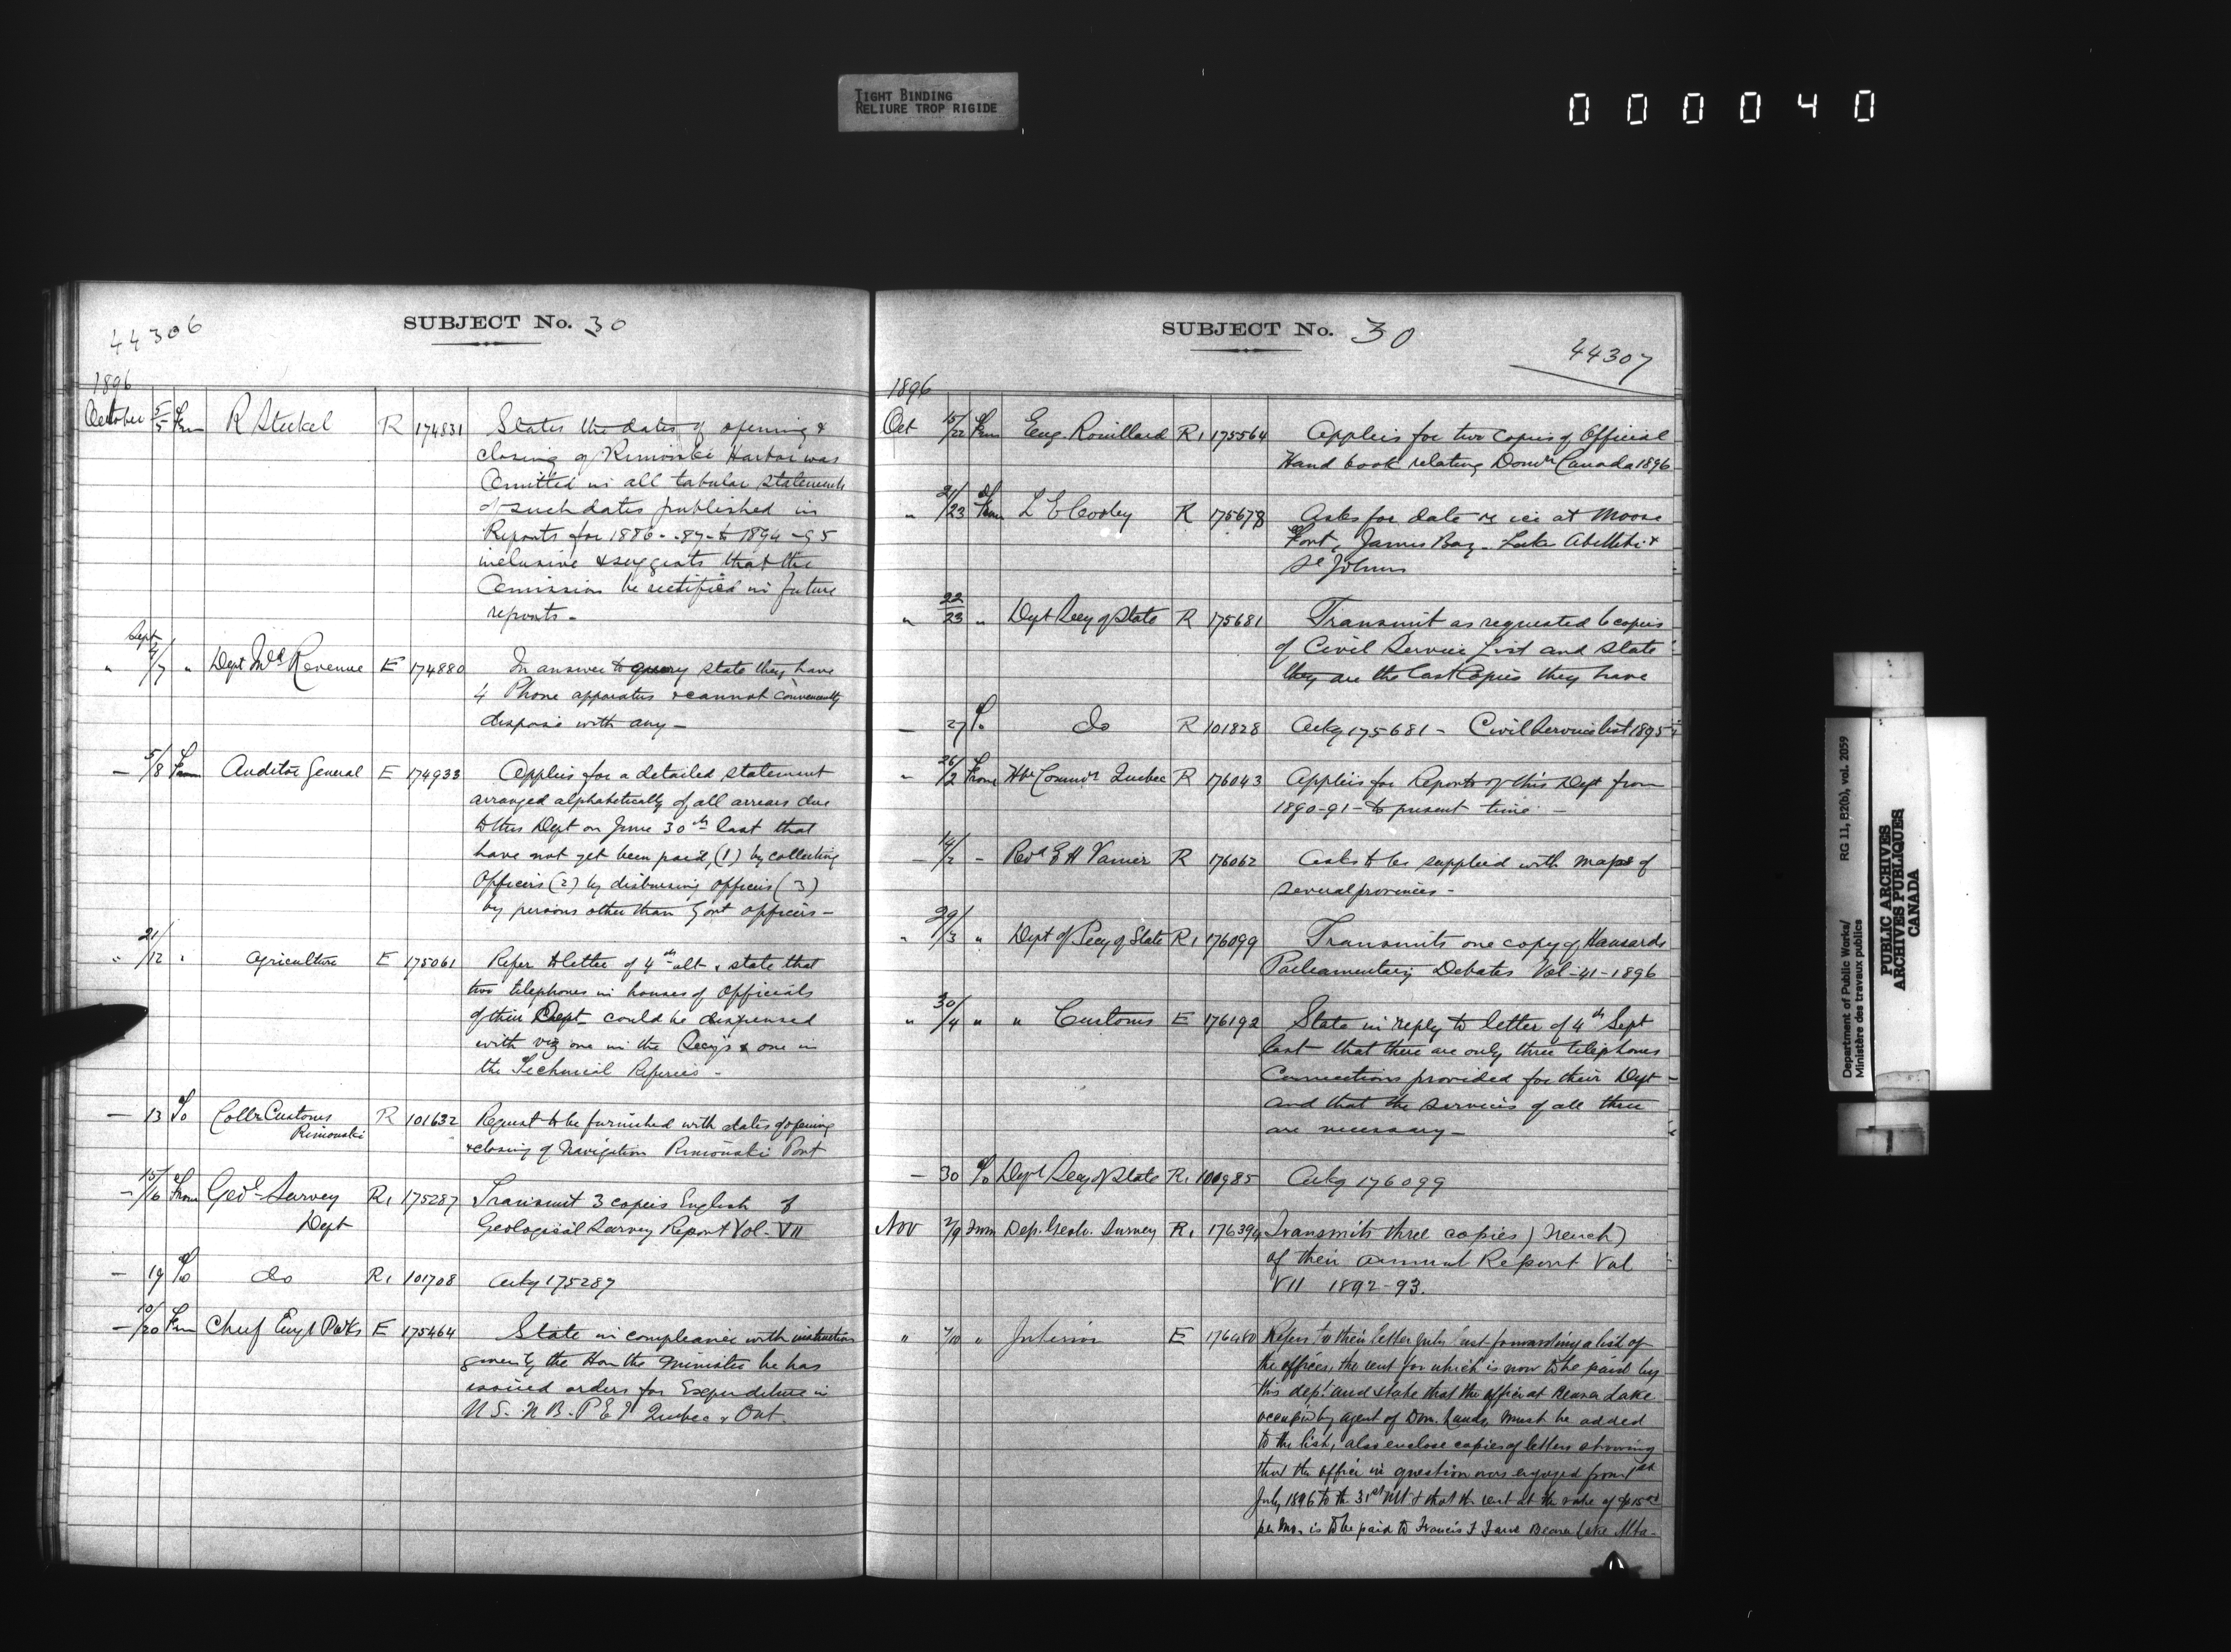 TIGHT BINDING
RELIURE TROP RIGIDE
000040
44306
SUBJECT No. 30
1896
October 5/5 From R Steckel R 174831 States the dates of opening &
closing of Rimouski Harbor was
omitted in all tabular statements
of such dates published in
Reports for 1886--87- to 1894-95
inclusive & suggests that the
omission be rectified in future
reports-
Sept
" /7 " Dept Inld Revenue E 174880 In answer to query state they have
4 Phone apparatus & cannot conveniently
dispose with any-
- 5/8 From Auditor General E 174933 Applies for a detailed statement
arranged alphabetically of all arrears due
to this Dept on June 30th last that
have not yet been paid, (1) by collecting
Officers (2) by disbursing officers (3)
by persons other than Govt officers-
" 21/12 " Agriculture E 175061 Refer to letter of 4th ult & state that
two telephones in houses of Officials
of their Dept- could be dispensed
with viz one in the Secy's & one in
the Technical Referees-
- 13 To Collr Customs R 101632 Request to be furnished with dates of opening
Rimouski & closing of Navigation Rimouski Port
- 15/16 From Geol- Survey R1 175287 Transmit 3 copies English of
Dept Geological Survey Report Vol- VII
- 19 To do R1 101708 Ackg 175287
- 10/20 From Chief Engr P Wks E 175464 State in compliance with instructions
given by the Hon the Minister he has
issued orders for Expenditure in
N S. N B. P E I Quebec & Ont.
SUBJECT No. 30
44307
1896
Oct 15/22 From Eug. Rouillard R1 175564 Applies for two copies of Official
Hand book relating Domn Canada 1896
" 21/23 From L E Cooley R 175678 Asks for date re ice at Moose
Fort, James Bay- Lake Abittibi &
St Johns
" 22/23 " Dept Secy of State R 175681 Transmit as requested 6 copies
of Civil Service List and state
they are the last copies they have
- 27 To do R 101828 Ackg 175681- Civil Service list 1895
" 26/2 From Hbr Commrs Quebec R 176043 Applies for Reports of this Dept from
1890-91- to present time-
- 14/2 - Revd E H Vanier R 176062 Asks to be supplied with maps of
several provinces-
" 29/3 " Dept of Secy of State R1 176099 Transmits one copy of Hansards
Parliamentary Debates Vol-41-1896
" 30/4 " " Customs E 176192 State in reply to letter of 4th Sept
last that there are only three telephones
Connections provided for their Dept-
and that the services of all three
are necessary-
- 30 To Dept Secy of State R1 100985 Ackg 176099
Nov 2/9 From Dep. Geolo. Survey R1 176394 Transmits three copies (French)
of their annual Report Vol
VII 1892-93.
" /10 " Interior E 176480 Refers to their letter July last forwarding a list of
the offices, the rent for which is now to be paid by
this dept. and state that the office at Beaver Lake
occupied by agent of Dom. Lands, must be added
to the list, also enclose copies of letters showing
that the office in question was engaged from 1st
July 1896 to the 31st ult & that the rent at the rate of $15.00
per mo. is to be paid to Francis F Beaver Lake Alta-
Department of Public Works/
Ministère des travaux publics
RG 11, B2(b), vol. 2059
PUBLIC ARCHIVES
ARCHIVES PUBLIQUES
CANADA